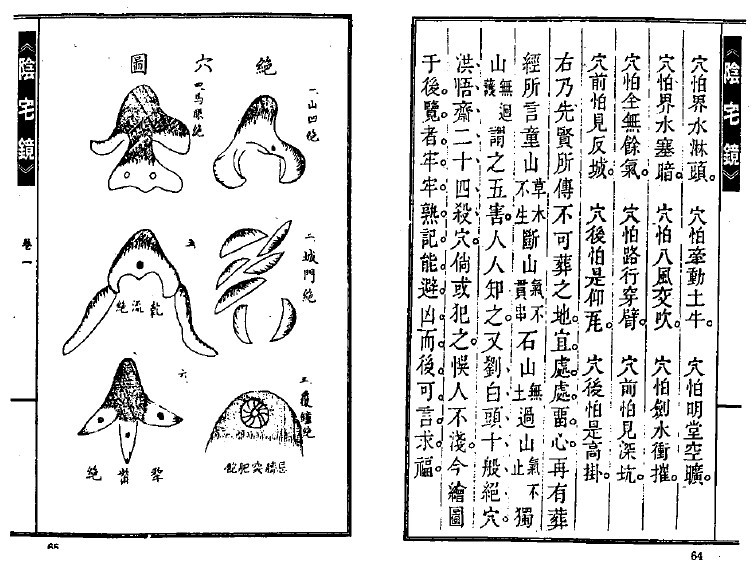 《陰宅鏡》
穴怕界水淋頭。穴怕牽動土牛。穴怕明堂空曠。
穴怕界水塞暗。穴怕八風交吹。穴怕劍水衝摧。
穴怕全無餘氣。穴怕路行穿臂。穴前怕見深坑。
穴前怕見反城。穴後怕是仰瓦。穴後怕是高掛。
右乃先賢所傳不可葬之地。宜處處畱心。再有葬
經所言童山草木不生斷山氣不貫串石山無土過山氣不止獨
山無迴護謂之五害。人人知之。又劉白頭十般絕穴。
洪悟齋二十四殺穴。倘或犯之。悞人不淺。今繪圖
于後。覽者牢牢熟記。能避凶而後可言求福。
64
絕穴圖
一山凹絕
二城門絕
三覆鐘絕
突肥飽
四馬眼絕
五
乾流絕
六
犂嘴絕
《陰宅鏡》
卷一
65